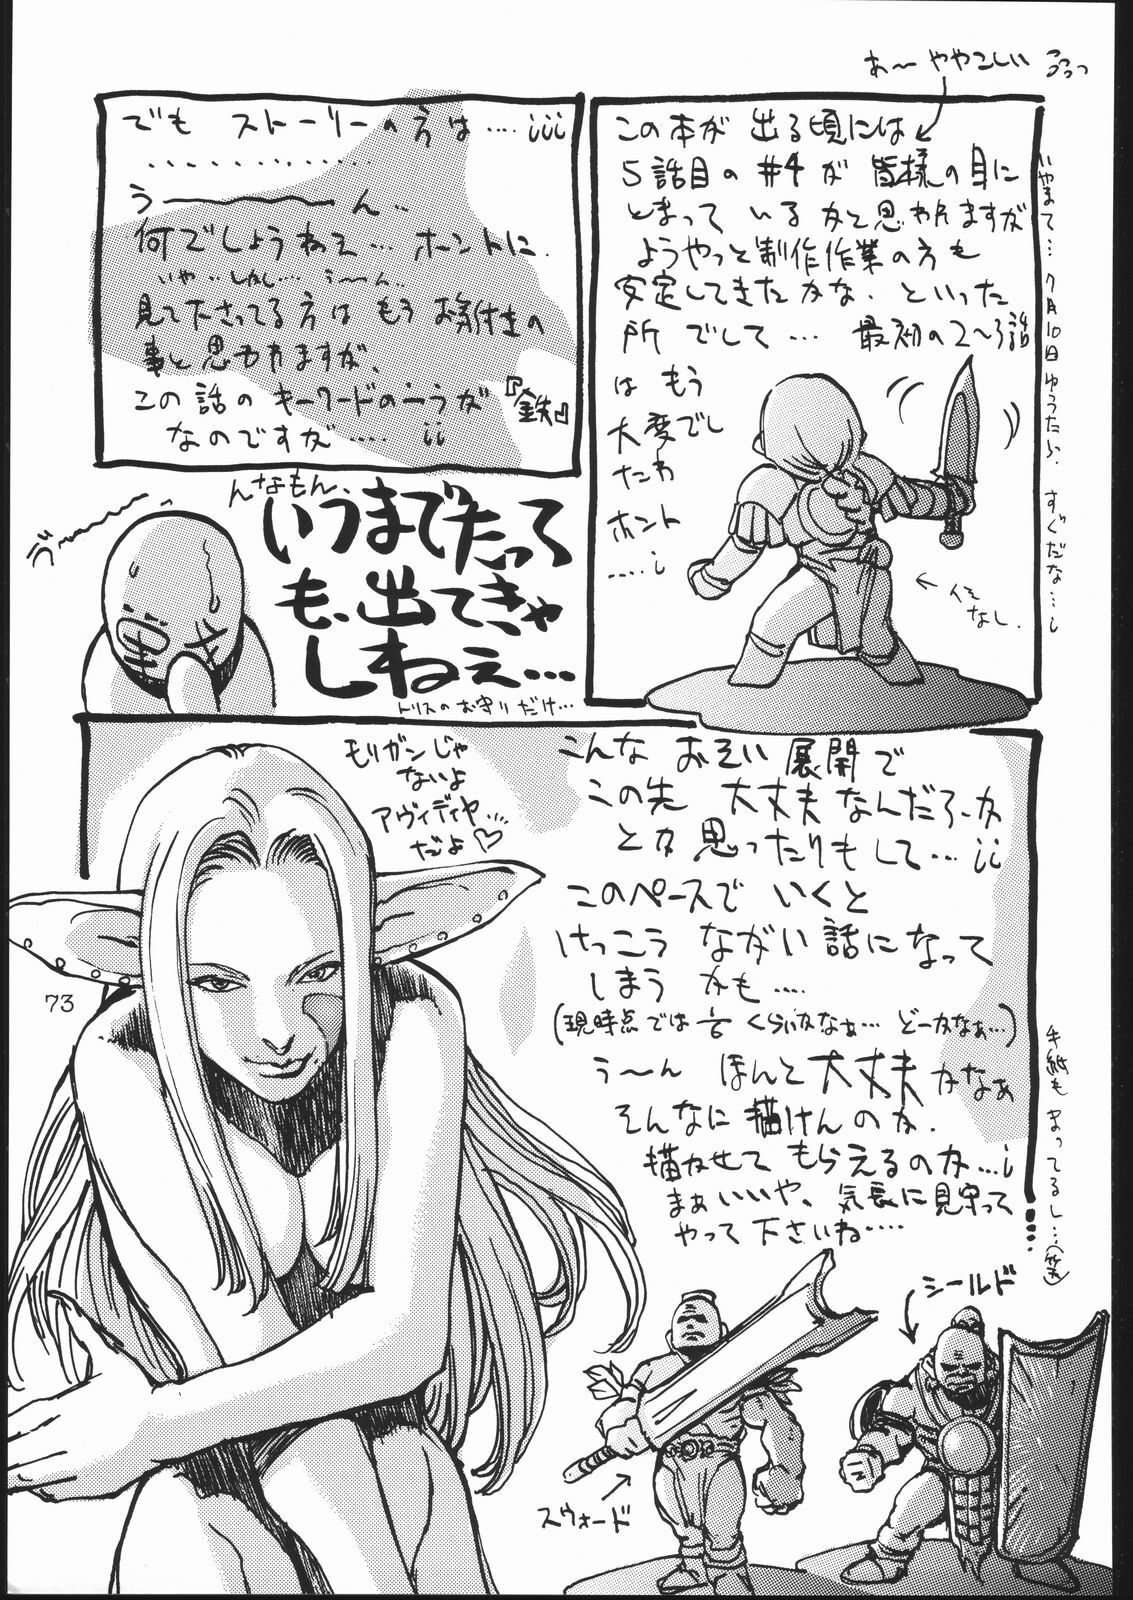 あ〜ややこしい
この本が出る頃には
5話目の#4が皆様の目に
とまっているかと思われますが
ようやっと制作作業の方も
安定してきたかな。といった
所でして…最初の2〜3話
はもう
大変でし
たわ
ホント
……
なし.
いやまて…7月10日ゆうたら、すぐだな…
でもストーリーの方は……
…………
う〜〜〜ん..
何でしょうねえ…ホントに.
いや…しかし…う〜ん..
見て下さってる方はもうお気付きの
事と思われますが、
この話のキーワードの一つが
『鉄』
なのですが……
んなもん、
いつまでたって
も、出てきゃ
しねぇ…
トリスのお守りだけ…
ヴ〜
モリガンじゃ
ないよ
アヴィディヤ…
だよ♡
こんなおそい展開で
この先大丈夫なんだろか
とか思ったりもして…
このペースでいくと
けっこうながい話になって
しまうかも……
(現時点では1/6くらいかなぁ…どーかなぁ…)
う〜んほんと大丈夫かなぁ
そんなに描けんのか.
描かせてもらえるのか…
まぁいいや。気長に見守って
やって下さいね……
手紙もまってるし…(笑)
シールド
スウォード
73